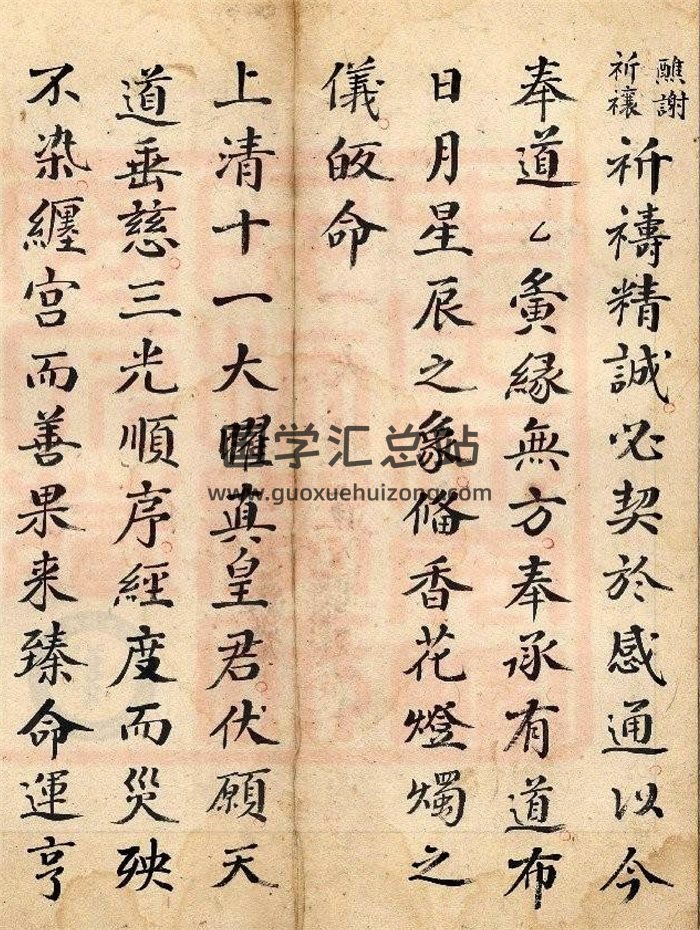 醮謝
祈禳
祈禱精誠必契於感通以今
奉道厶夤緣無方奉承有道布
日月星辰之象俻香花燈燭之
儀皈命
上清十一大曜真皇君伏願天
道垂慈三光順序經度而災殃
不染纏宮而善果来臻命運亨
国学汇总站
www.guoxuehuizong.com